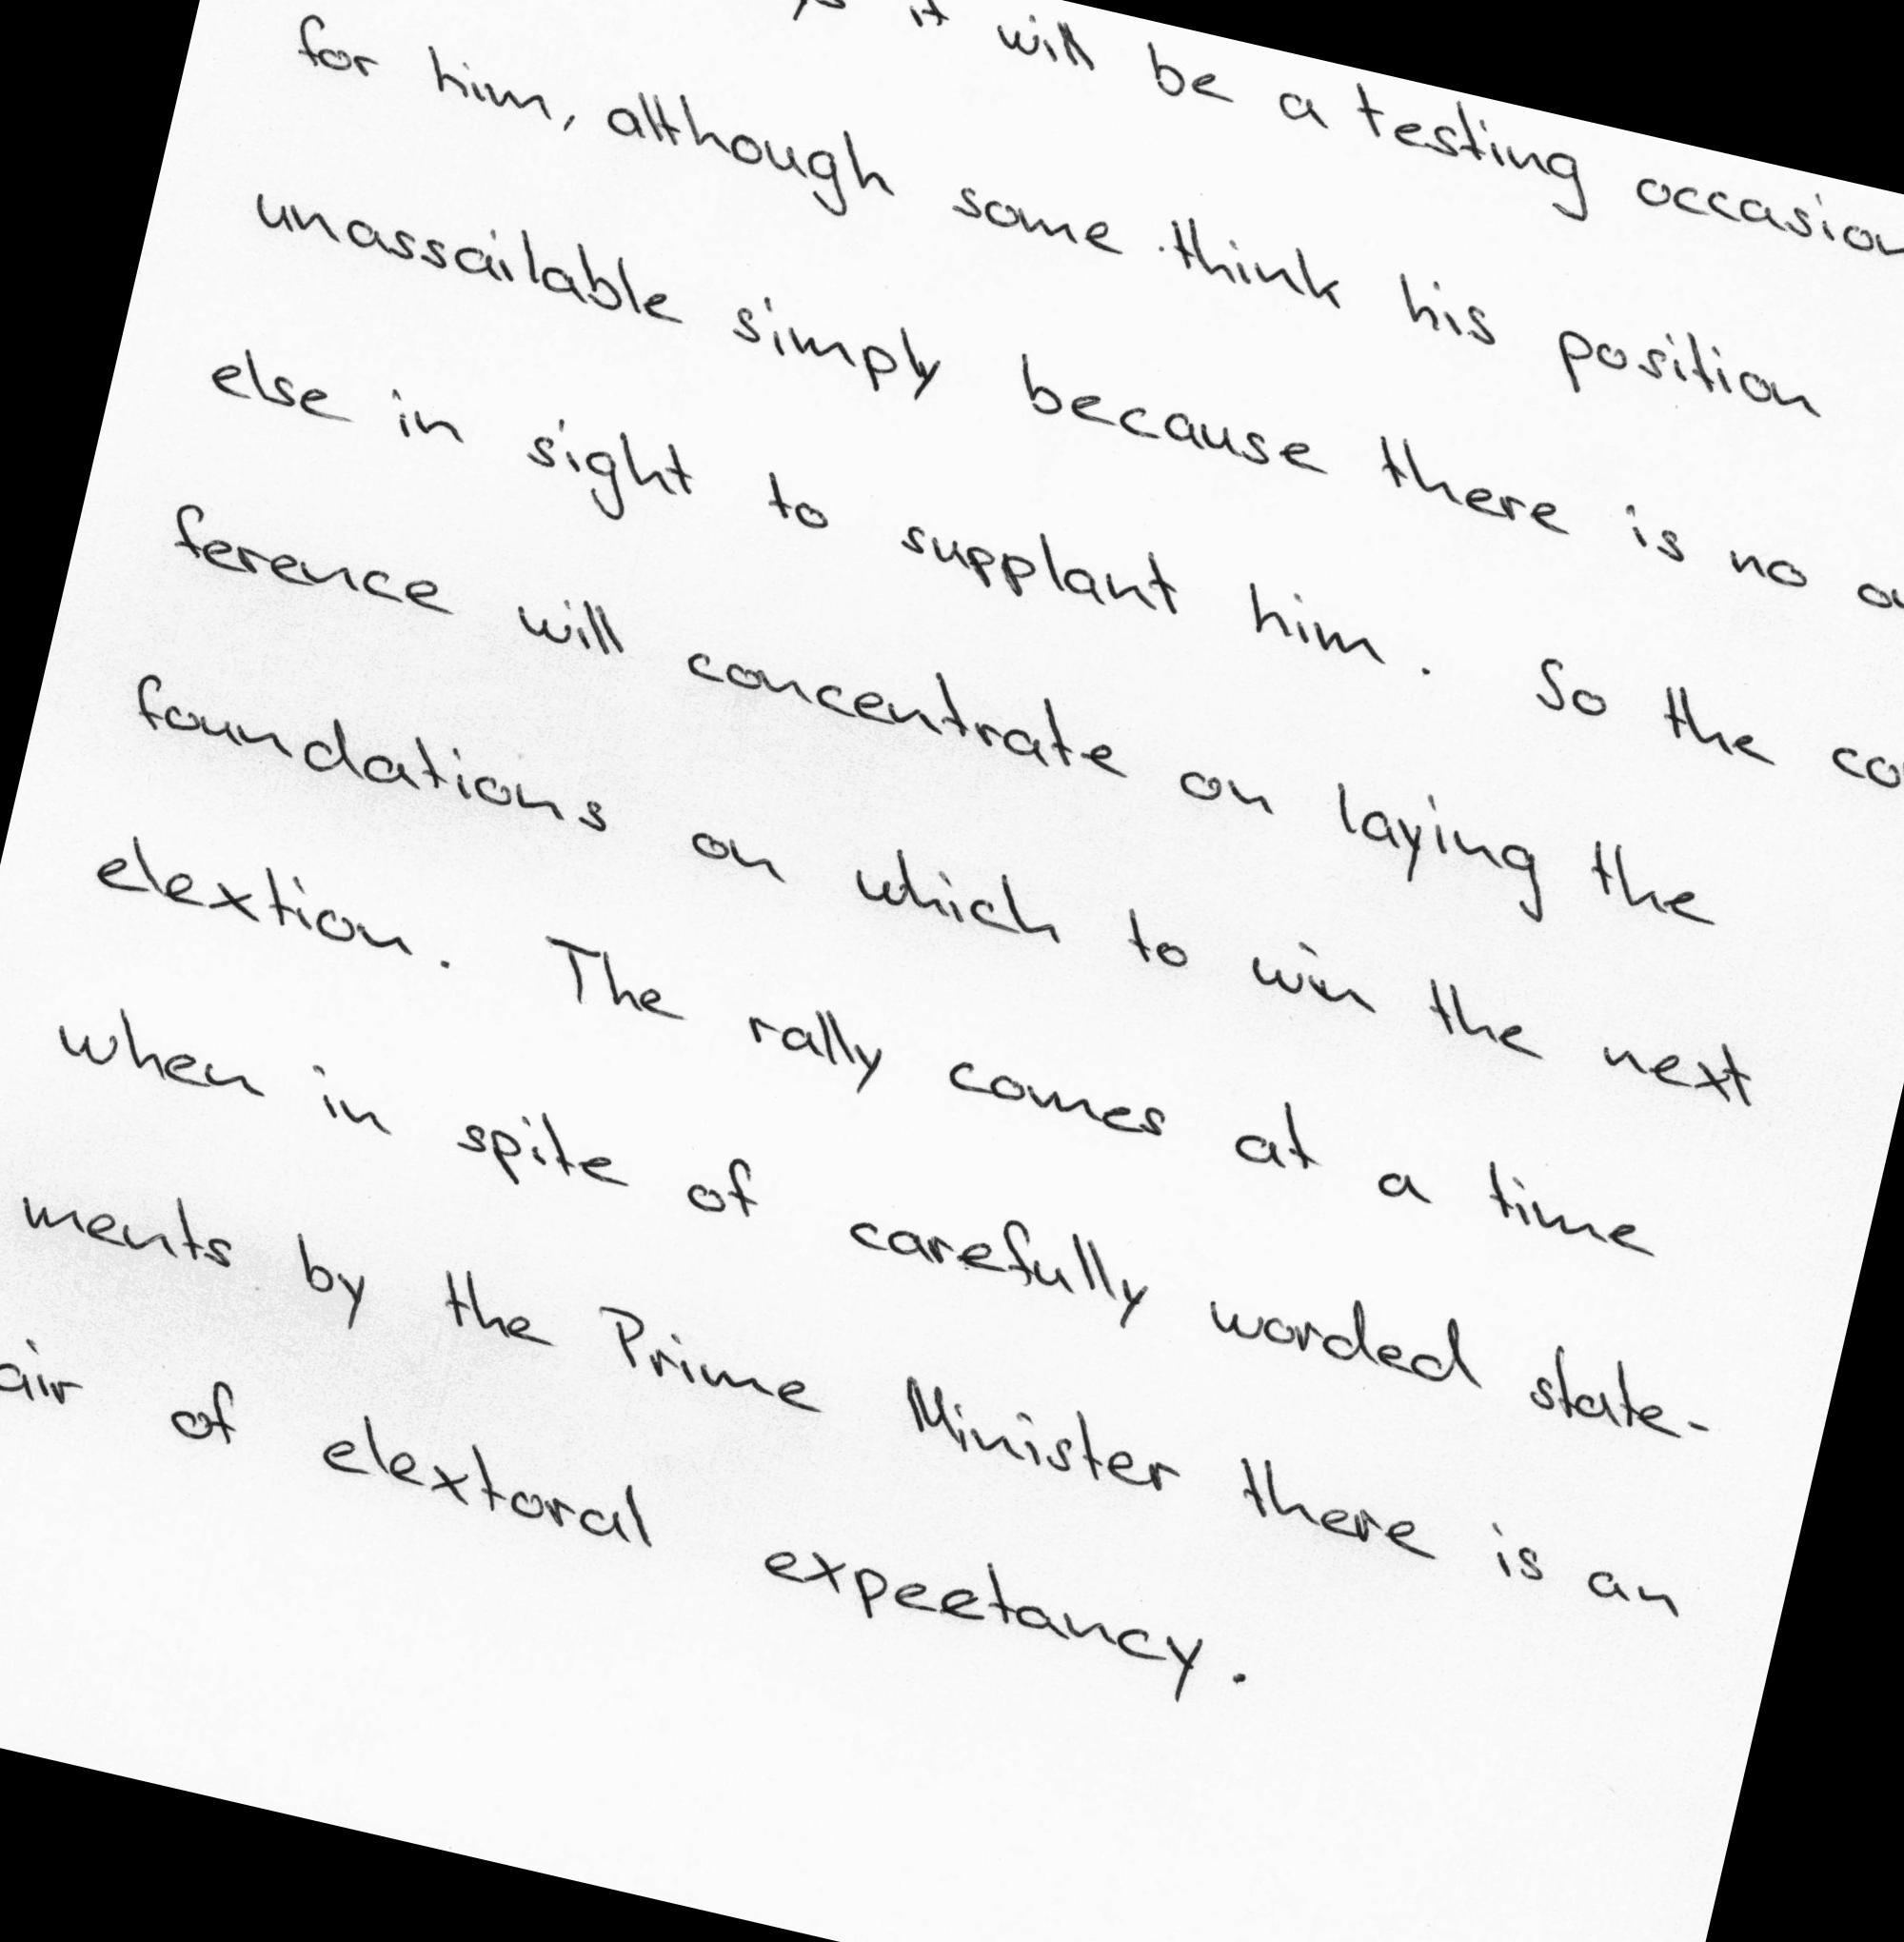 it will be a testing occasion
for him, although some think his position
unassailable simply because there is no
else in sight to supplant him. So the
ference will concentrate on laying the
foundations on which to win the next
elextion. The rally comes at a time
when in spite of carefully worded state-
ments by the Prime Minister there is an
air of elextoral expeetancy.